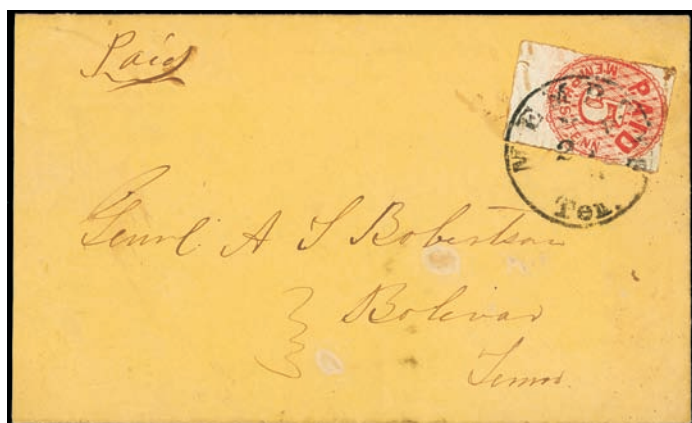 Paid
PAID
5
MEMPHIS TENN
MEMPHIS
Ten.
Genrl. A S Robertson
Bolivar
Tenn.